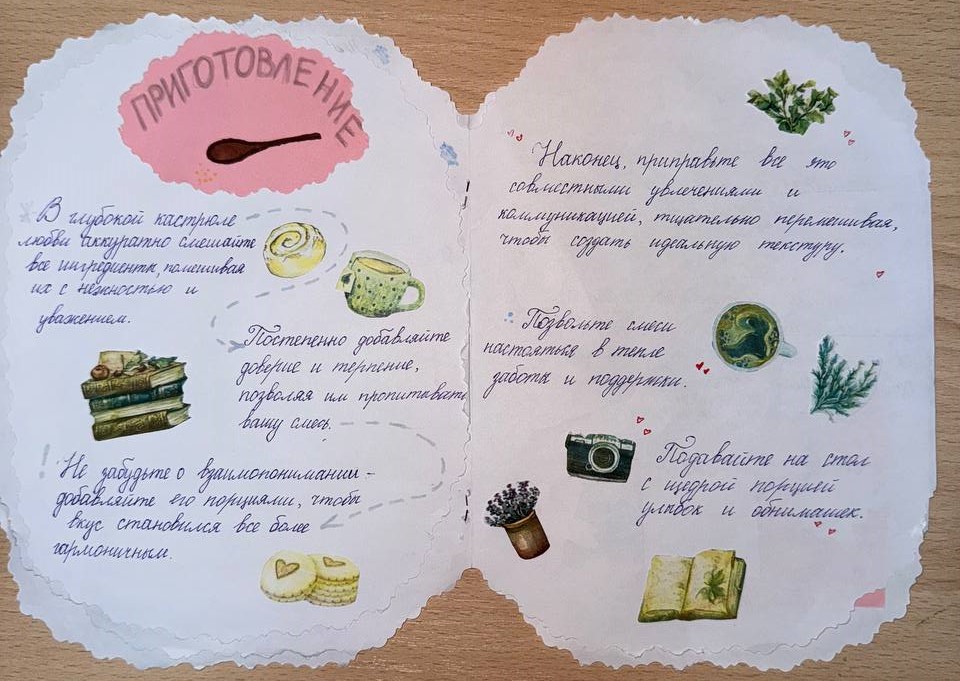 ПРИГОТОВЛЕНИЕ
В глубокой кастрюле
любви аккуратно смешайте
все ингредиенты, помешивая
их с нежностью и
уважением.
Постепенно добавляйте
доверие и терпение,
позволяя им пропитывать
вашу смесь.
Не забудьте о взаимопонимании –
добавляйте его порциями, чтобы
вкус становился все более
гармоничным.
Наконец, приправьте все это
совместными увлечениями и
коммуникацией, тщательно перемешивая,
чтобы создать идеальную текстуру.
Позвольте смеси
настояться в тепле
заботы и поддержки.
Подавайте на стол
с щедрой порцией
улыбок и обнимашек.